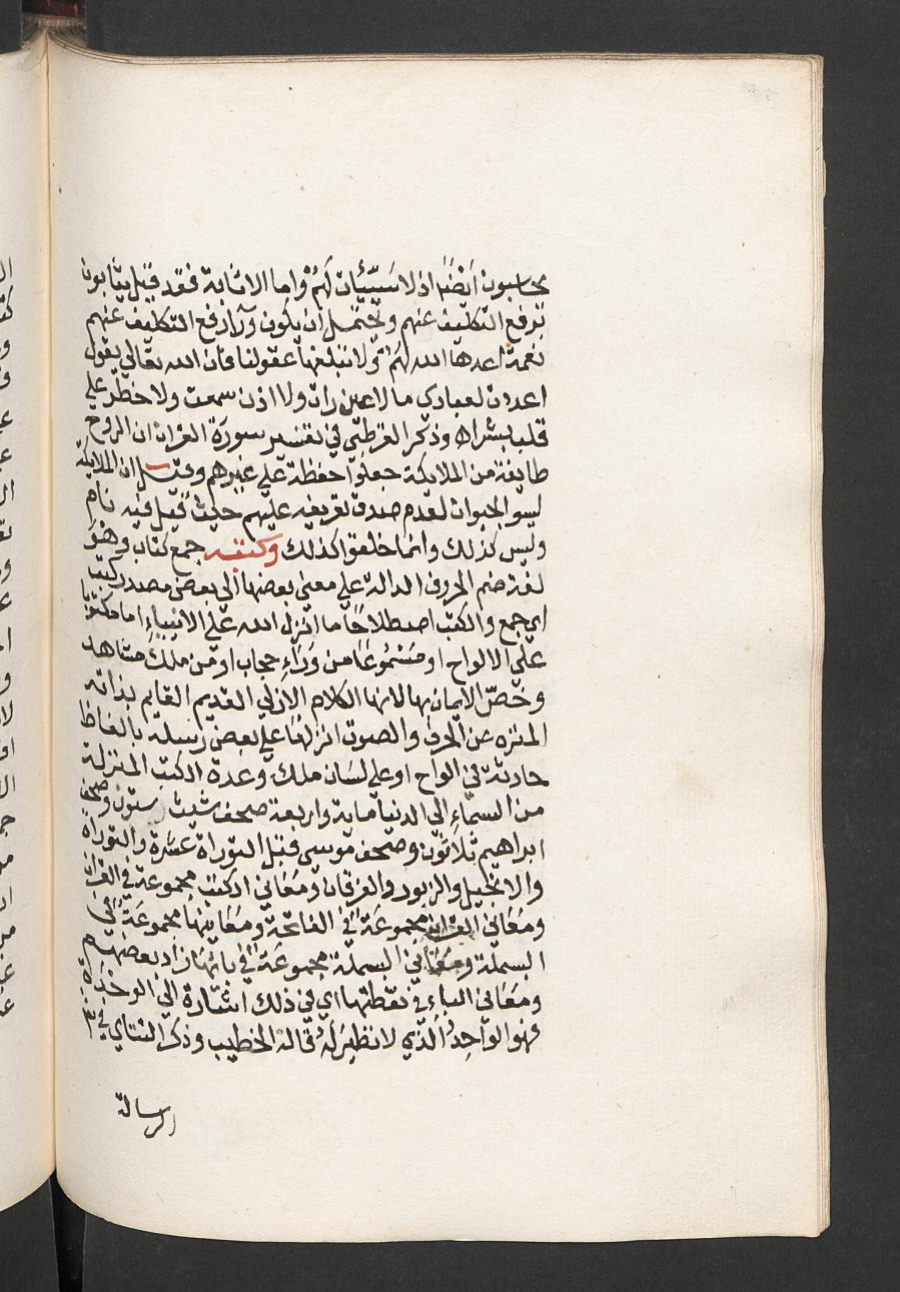 يحاسبون أيضًا اذ لا سَيِّئات لَهُمْ واما الاثابة فقد قيل يثابون
برفع التكليف عنهم ويحتمل ان يكون ورآء رفع التكليف عنهم
نعمة اعدها الله لَهُمْ ولا تبلغها عقولنا فان الله تعالى يقول
اعددت لعبادي ما لا عين رات ولا اذن سمعت ولا خطر على
قلب بشر اه وذكر القرطبي في تفسير سورة القران ان الروح
طايفة من الملايكة جعلوا حفظة على غيرهم وقيل ان الملايكة
ليسو الحيوان لعدم صدق تعريفه عليهم حيث قيل فيه نام
وليس كذلك وانما خلقوا كذلك وكتبه جمع كتاب وهوَ
لغة ضم الحروف الدالة على معنى بعضها الى بعض مصدر كتب
اي جمع والكتب اصطلاحًا ما انزل الله على الانبياءِ اما مكتوبا
على الالواح او مَسْمُوعًا من وَرَاءِ حجاب او من ملك مشاهد
وخصّ الايمان بها لانها الكلام الازلي القديم القايم بذاته
المنزه عن الحرف والصوت انزلها على بعض رسله بالفاظ
حادثة في الواح او على لسان ملك وعدة الكتب المنزلة
من السماءِ الى الدنيا ماية واربعة صحف شيث ستون وصحف
ابراهيم ثلاثون وصحف موسى قبل التوراة عشرة والتوراة
والانجيل والزبور والفرقان ومَعَاني الكتب مجموعة في القران
ومَعَاني القران مجموعَة في الفاتحة ومعَانيها مجموعَة في
البسملة ومعاني البسملة مجموعَة في بائها زاد بعضهم
ومَعَاني الباءِ في نقطتها اي في ذلك اشارة الى الوحدة
فهو الوَاحِدُ الّذي لا نظير لَهُ قاله الخطيب وذكر التتاي في
الرسالة